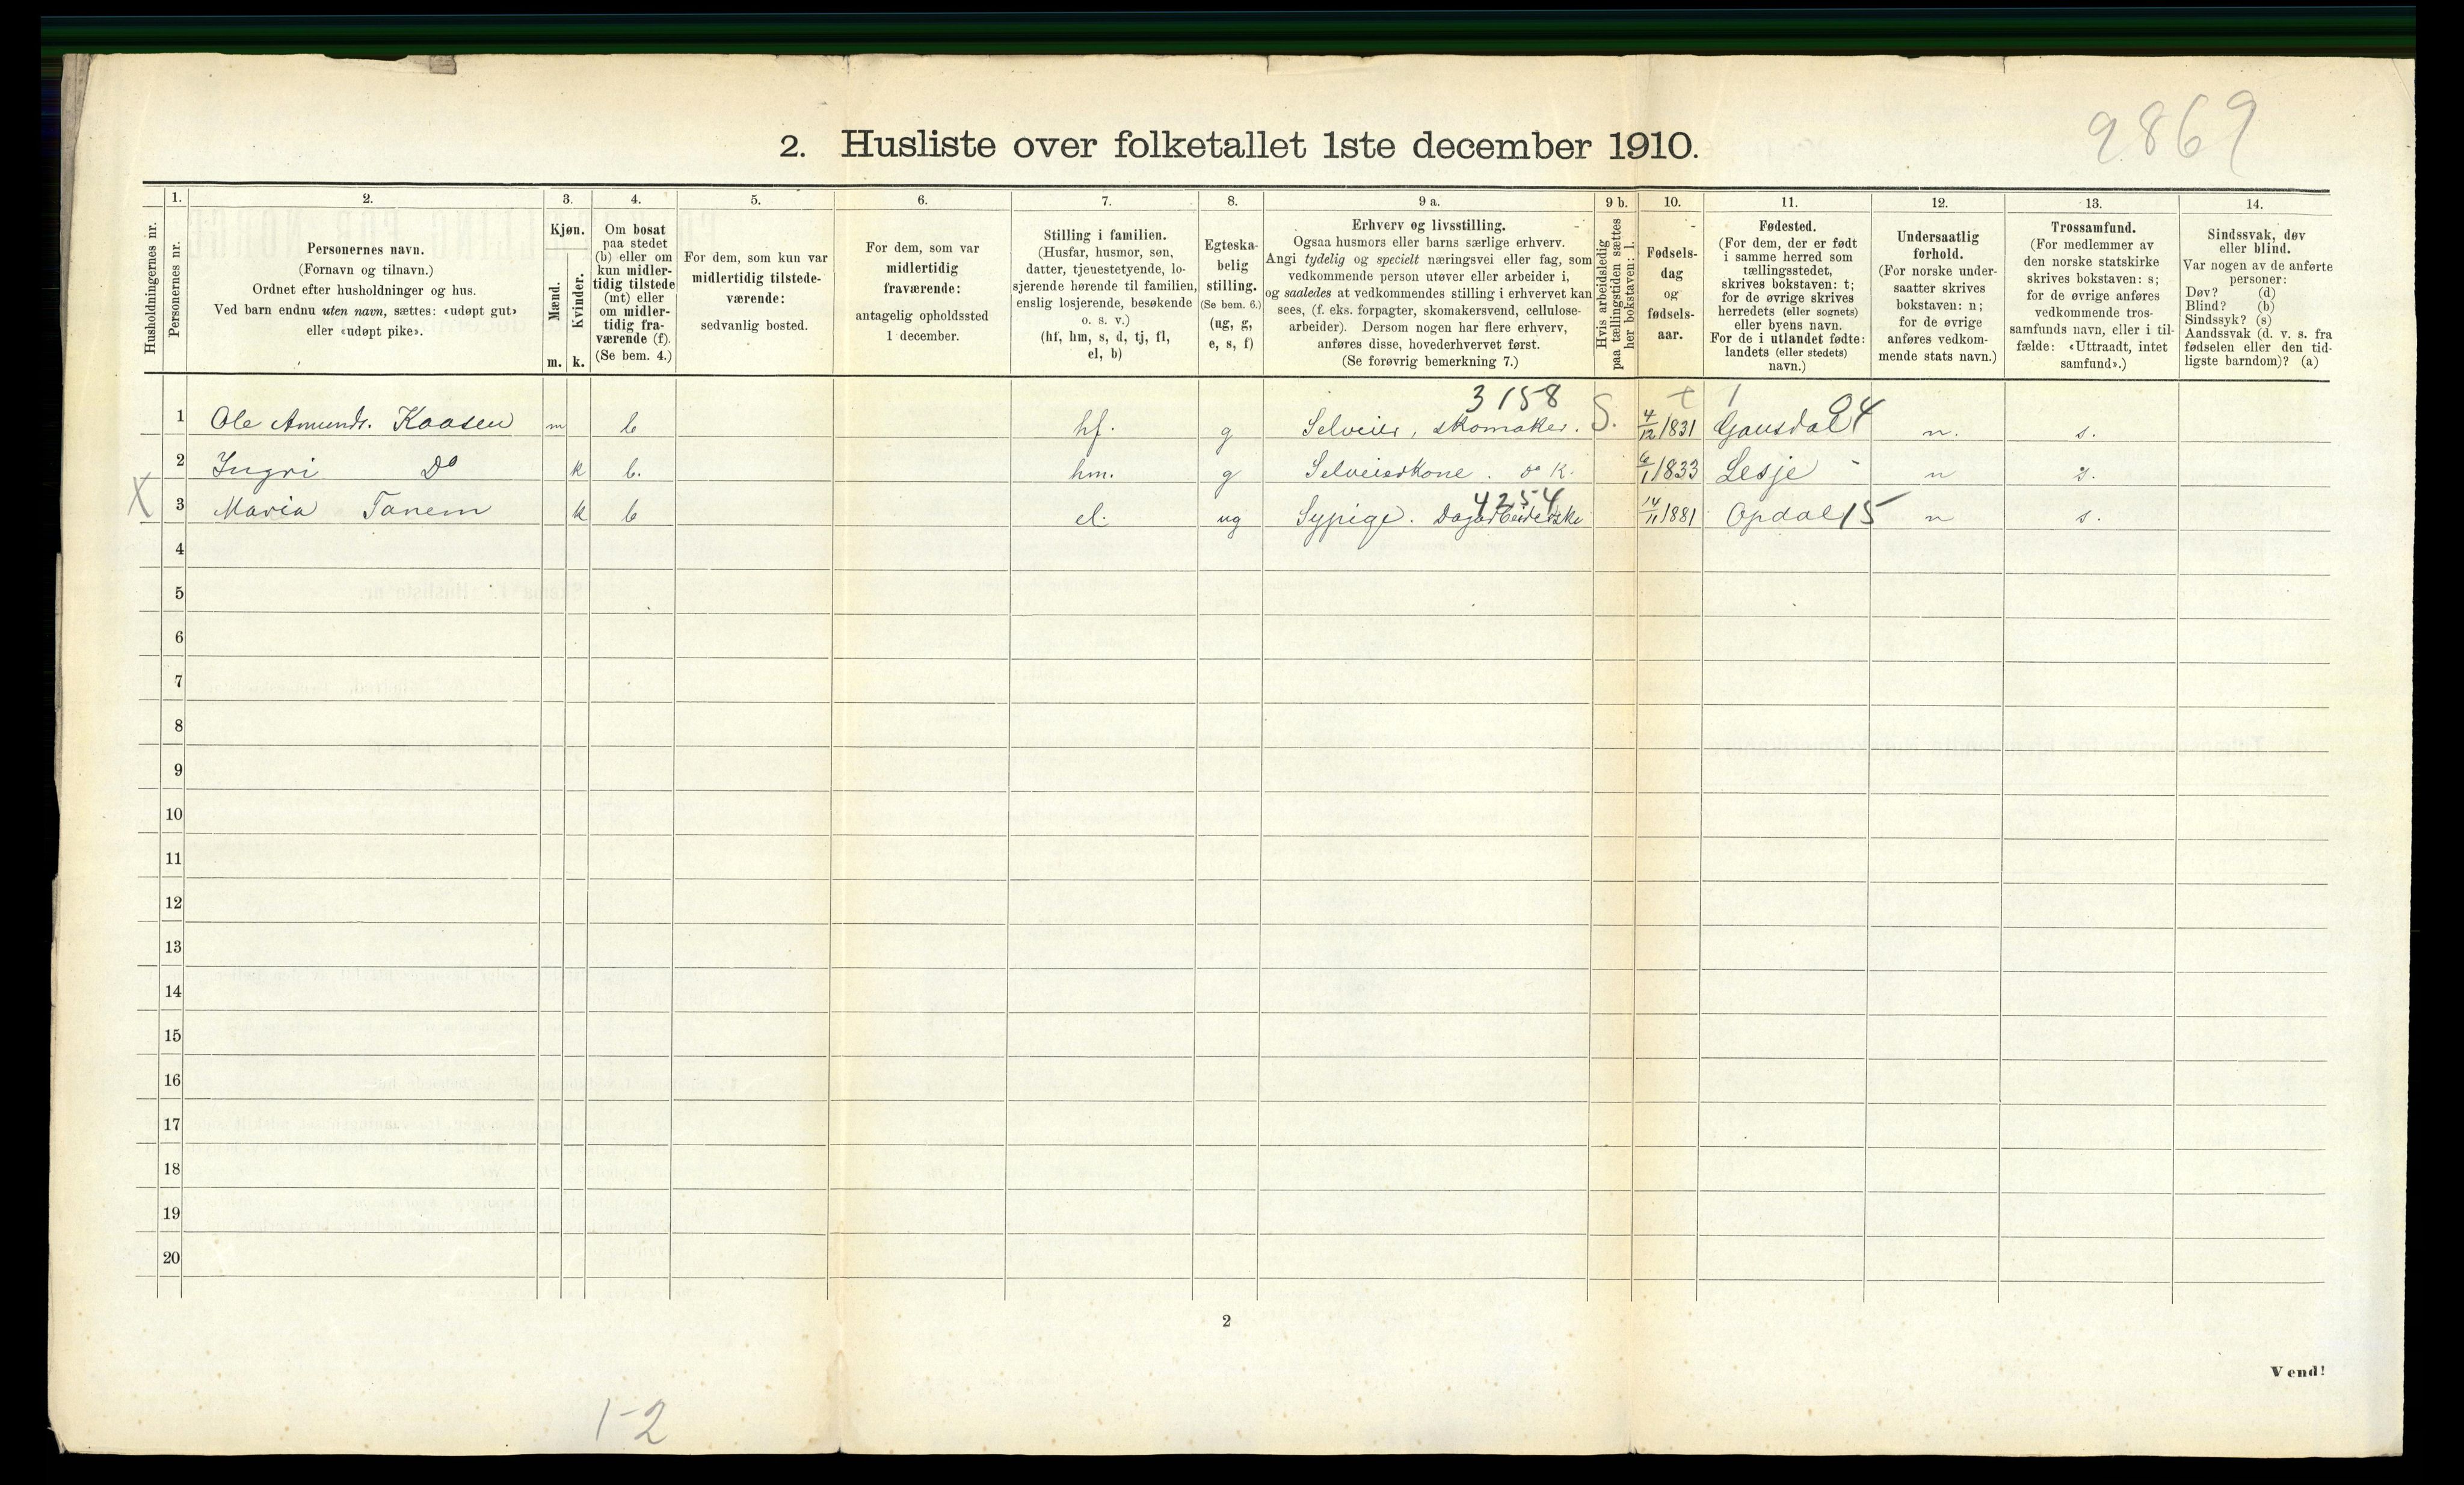 9869
2. Husliste over folketallet 1ste december 1910.
Husholdningernes nr.
1. Personernes nr.
2. Personernes navn.
(Fornavn og tilnavn.)
Ordnet efter husholdninger og hus.
Ved barn endnu uten navn, sættes: «udøpt gut»
eller «udøpt pike».
3. Kjøn.
Mænd. m.
Kvinder. k.
4. Om bosat
paa stedet
(b) eller om
kun midler-
tidig tilstede
(mt) eller
om midler-
tidig fra-
værende (f).
(Se bem. 4.)
5. For dem, som kun var
midlertidig tilstede-
værende:
sedvanlig bosted.
6. For dem, som var
midlertidig
fraværende:
antagelig opholdssted
1 december.
7. Stilling i familien.
(Husfar, husmor, søn,
datter, tjenestetyende, lo-
sjerende hørende til familien,
enslig losjerende, besøkende
o. s. v.)
(hf, hm, s, d, tj, fl,
el, b)
8. Egteska-
belig
stilling.
(Se bem. 6.)
(ug, g,
e, s, f)
9 a. Erhverv og livsstilling.
Ogsaa husmors eller barns særlige erhverv.
Angi tydelig og specielt næringsvei eller fag, som
vedkommende person utøver eller arbeider i,
og saaledes at vedkommendes stilling i erhvervet kan
sees, (f. eks. forpagter, skomakersvend, cellulose-
arbeider). Dersom nogen har flere erhverv,
anføres disse, hovederhvervet først.
(Se forøvrig bemerkning 7.)
9 b. Hvis arbeidsledig
paa tællingstiden sættes
her bokstaven: l.
10. Fødsels-
dag
og
fødsels-
aar.
11. Fødested.
(For dem, der er født
i samme herred som
tællingsstedet,
skrives bokstaven: t;
for de øvrige skrives
herredets (eller sognets)
eller byens navn.
For de i utlandet fødte:
landets (eller stedets)
navn.)
12. Undersaatlig
forhold.
(For norske under-
saatter skrives
bokstaven: n;
for de øvrige
anføres vedkom-
mende stats navn.)
13. Trossamfund.
(For medlemmer av
den norske statskirke
skrives bokstaven: s;
for de øvrige anføres
vedkommende tros-
samfunds navn, eller i til-
fælde: «Uttraadt, intet
samfund».)
14. Sindssvak, døv
eller blind.
Var nogen av de anførte
personer:
Døv? (d)
Blind? (b)
Sindssyk? (s)
Aandssvak (d. v. s. fra
fødselen eller den tid-
ligste barndom)? (a)
3158 t 1 04
1 Ole Amunds. Kaasen m b hf. g Selveier, skomaker. S. 4/12 1831 Gausdal n. s.
2 Ingri Do k b. hm. g Selveierkone. do K. 6/1 1833 Lesje - n s.
4254
X 3 Maria Tanem k b el. ug Sypige. Dagarbeiderske 14/11 1881 Opdal 15 n s.
4
5
6
7
8
9
10
11
12
13
14
15
16
17
18
19
20
2
Vend!
1-2